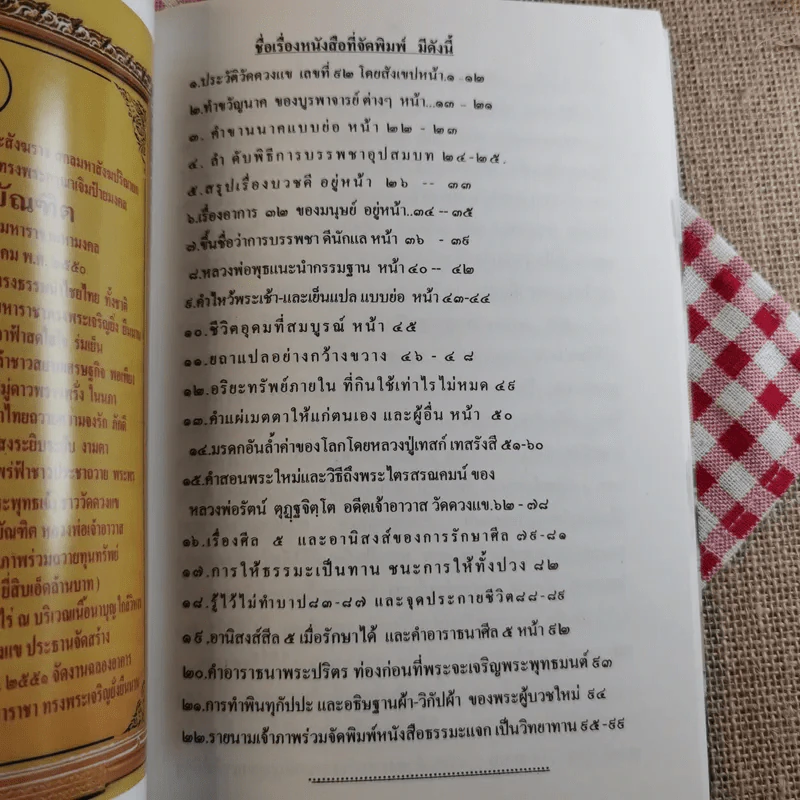 ะสังฆราช สกลมหาสังฆปริณายก
ัณฑิต
คม พ.ศ. ๒๕๕๐
ทั้งชาติ
ร่มเย็น
พอเพียง
ในนภา
ภักดี
งามตา
หลวงพ่อเจ้าอาวาส
ภาพร่วมถวายทุนทรัพย์
ยี่สิบเอ็ดล้านบาท )
ไร่ ณ บริเวณเนื้อนาบุญใกล้วัด
ประธานจัดสร้าง
๒๕๕๑ จัดงานฉลองอาคาร
าราชา ทรงพระเจริญยิ่งยืนนาน
ชื่อเรื่องหนังสือที่จัดพิมพ์ มีดังนี้
๑.ประวัติวัดดวงแข เลขที่ ๙๒ โดยสังเขปหน้า.๑ -๑๒
๒.ทำขวัญนาค ของบูรพาจารย์ต่างๆ หน้า...๑๓ - ๒๑
๓. คำขานนาคแบบย่อ หน้า ๒๒ - ๒๓
๔. ลำ ดับพิธีการบรรพชาอุปสมบท ๒๔-๒๕.
๕.สรุปเรื่องบวชดี อยู่หน้า ๒๖ -- ๓๓
๖.เรื่องอาการ ๓๒ ของมนุษย์ อยู่หน้า..๓๔ -- ๓๕
๗.ขึ้นชื่อว่าการบรรพชา ดีนักแล หน้า ๓๖ - ๓๙
๘.หลวงพ่อพุธแนะนำกรรมฐาน หน้า ๔๐ -- ๔๒
๙.คำไหว้พระเช้า-และเย็นแปล แบบย่อ หน้า ๔๓-๔๔
๑๐.ชีวิตอุดมที่สมบูรณ์ หน้า ๔๕
๑๑.ยถาแปลอย่างกว้างขวาง ๔๖ - ๔ ๘
๑๒.อริยะทรัพย์ภายใน ที่กินใช้เท่าไรไม่หมด ๔๙
๑๓.คำแผ่เมตตาให้แก่ตนเอง และผู้อื่น หน้า ๕๐
๑๔.มรดกอันล้ำค่าของโลกโดยหลวงปู่เทสก์ เทสรังสี ๕๑-๖๐
๑๕.คำสอนพระใหม่และวิธีถึงพระไตรสรณคมน์ ของ
หลวงพ่อรัตน์ ตุฏฺฐจิตฺโต อดีตเจ้าอาวาส วัดดวงแข.๖๒ - ๗๘
๑๖.เรื่องศีล ๕ และอานิสงส์ของการรักษาศีล ๗๙-๘๑
๑๗.การให้ธรรมะเป็นทาน ชนะการให้ทั้งปวง ๘๒
๑๘.รู้ไว้ไม่ทำบาป๘๓-๘๗ และจุดประกายชีวิต๘๘-๘๙
๑๙.อานิสงส์สีล ๕ เมื่อรักษาได้ และคำอาราธนาศีล ๕ หน้า ๙๒
๒๐.คำอาราธนาพระปริตร ท่องก่อนที่พระจะเจริญพระพุทธมนต์ ๙๓
๒๑.การทำพินทุกัปปะ และอธิษฐานผ้า-วิกัปผ้า ของพระผู้บวชใหม่ ๙๔
๒๒.รายนามเจ้าภาพร่วมจัดพิมพ์หนังสือธรรมะแจก เป็นวิทยาทาน ๙๕-๙๙